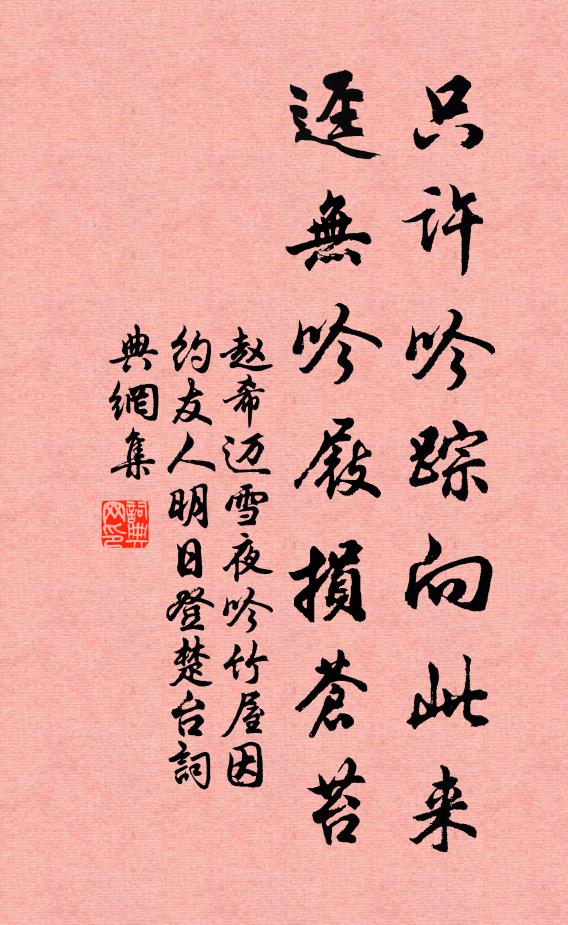 只许吟踪向此来
逕無吟屐損蒼苔
赵希迈雪夜吟竹屋因
约友人明日登楚台詞
典網集
詞典網印